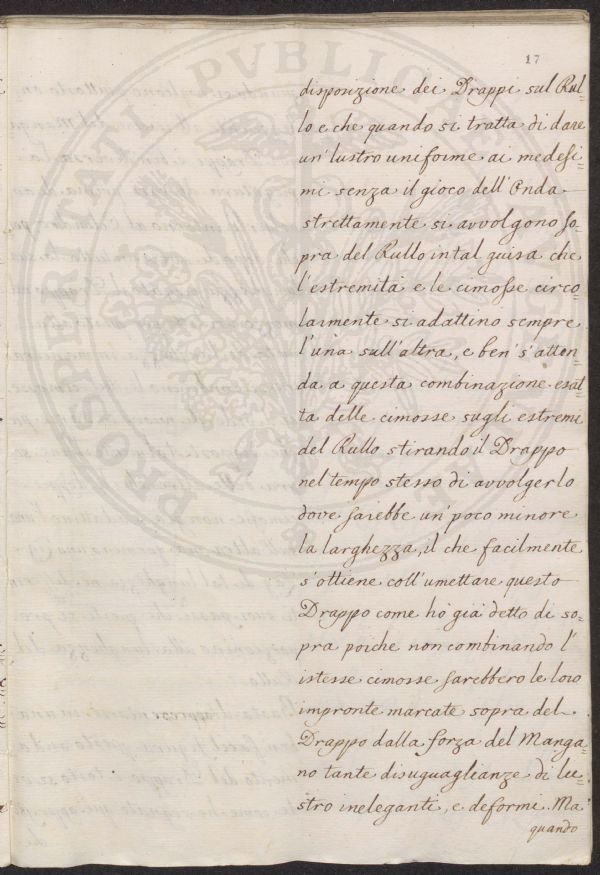 17
disposizione dei Drappi sul Rul=
lo e che quando si tratta di dare
un' lustro uniforme ai medesi=
mi senza il gioco dell' Onda
strettamente si avvolgono so=
pra del Rullo in tal guisa che
l'estremità e le cimosse circo=
larmente si adattino sempre
l'una sull'altra, e ben' s'atten=
da a questa combinazione esat=
ta delle cimosse sugli estremi
del Rullo stirando il Drappo
nel tempo stesso di avvolgerlo
dove sarebbe un' poco minore
la larghezza, il che facilmente
s'ottiene coll' umettare questo
Drappo come ho già detto di so=
pra poiche non combinando l'
istesse cimosse sarebbero le loro
impronte marcate sopra del
Drappo dalla forza del Manga=
no tante disuguaglianze di lu=
stro ineleganti, e deformi. Ma
quando
PROSPERITATI PVBLICAE